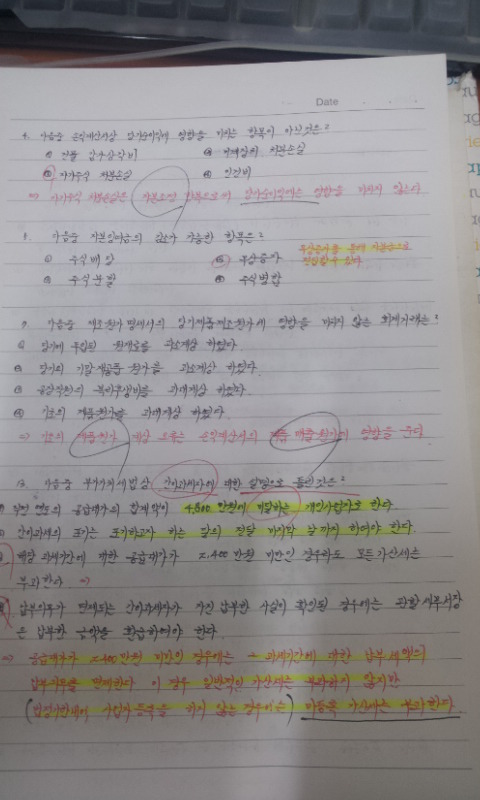 Date
4. 다음중 손익계산서상 당기순이익에 영향을 미치는 항목이 아닌것은?
① 건물 감가상각비 ② 처분손실
③ 자기주식 처분손실 ④ 인건비
⇒ 자기주식 처분손실은 자본조정 항목으로서 당기순이익에는 영향을 미치지 않는다
다음중 감소가 가능한 항목은?
① 주식매입 ③ 무상증자
② 주식분할 ④ 주식병합
무상증자를 통해 자본금으로
전입할 수 있다
9. 다음중 제조원가명세서의 당기제품제조원가에 영향을 미치지 않는 회계거래는?
① 당기에 투입된 원재료를 과소계상 하였다
② 당기의 기말재공품 원가를 과소계상 하였다
③ 공장직원의 복리후생비를 과대계상 하였다
④ 기초의 제품원가를 과대계상 하였다
⇒ 기초의 제품원가 계상 오류는 손익계산서의 제품 매출원가에 영향을 준다
13. 다음중 부가가치세법상 간이과세자에 대한 설명으로 틀린것은?
① 직전 연도의 공급대가의 합계액이 4,800만원에 미달하는 개인사업자로 한다
② 간이과세의 포기는 포기하고자 하는 달의 전달 마지막 날까지 하여야 한다.
해당 과세기간에 대한 공급대가가 2,400만원 미만인 경우라도 모든 가산세는
부과한다 ⇒
납부의무가 면제되는 간이과세자가 자진 납부한 사실이 확인된 경우에는 관할세무서장
은 납부한 금액을 환급하여야 한다.
⇒ 공급대가가 2,400만원 미만의 경우에는 그 과세기간에 대한 납부세액의
납부의무를 면제한다 이 경우 일반적인 가산세는 부과하지 않지만
(법정기한내에 사업자등록을 하지 않는 경우에는) 미등록 가산세는 부과한다